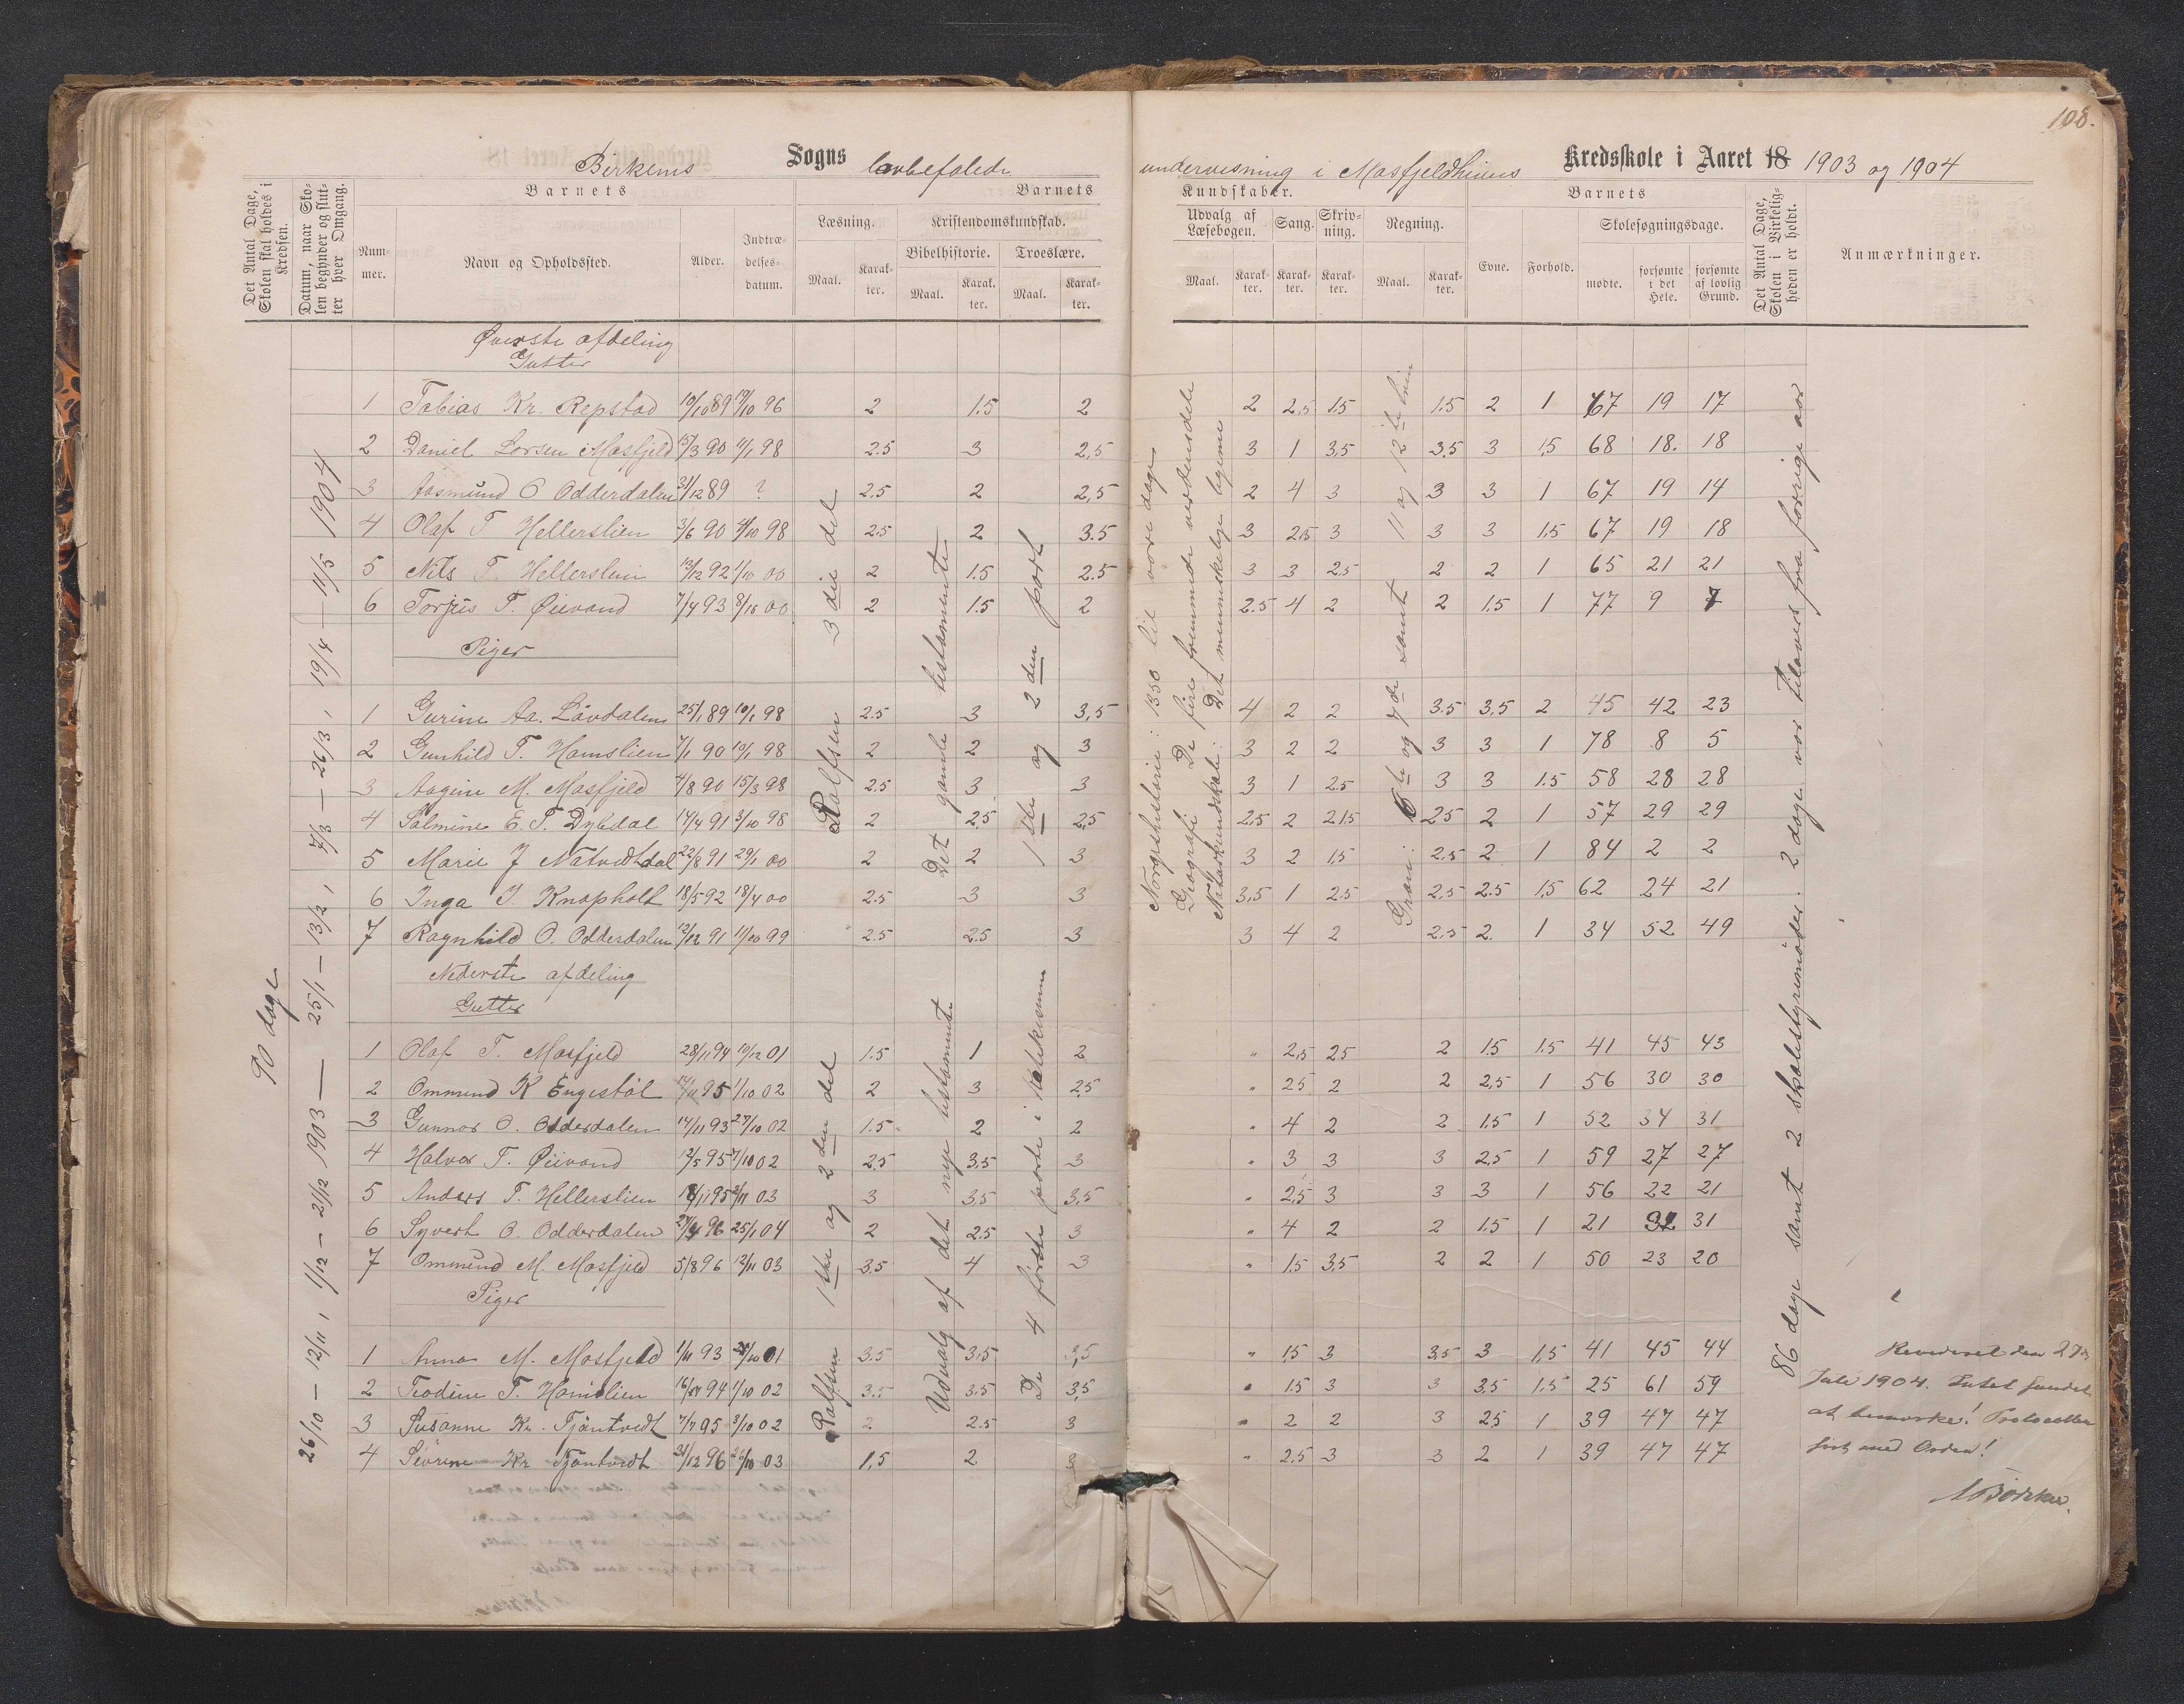 108.
Birkenes Sogns lovbefalede undervisning i Mosfjeldheiens Kredsskole i Aaret 18 1903 og 1904
Det Antal Dage, Skolen skal holdes i Kredsen.
Datum, naar Skolen begynder og slutter hver Omgang.
Barnets
Nummer.
Navn og Opholdssted.
Alder.
Indtrædelsesdatum.
Barnets Kundskaber.
Læsning.
Maal. Karakter.
Kristendomskundskab.
Bibelhistorie. Troeslære.
Maal. Karakter. Maal. Karakter.
Udvalg af Læsebogen.
Maal. Karakter.
Sang. Karakter.
Skrivning. Karakter.
Regning.
Maal. Karakter.
Barnets
Evne. Forhold.
Skolesøgningsdage.
mødte. forsømte i det Hele. forsømte af lovlig Grund.
Det Antal Dage, Skolen i Virkeligheden er holdt.
Anmærkninger.
90 dage
26/10 — 12/11, 1/12 — 21/12 1903 — 25/1 — 13/2, 7/3 — 26/3, 19/4 — 11/5 1904
Øverste afdeling
Gutter
1 Tobias Kr. Repstad 10/10 89 19/10 96 2 1.5 2 2 2,5 1.5 1.5 2 1 67 19 17
2 Daniel Larsen Mosfjeld 15/3 90 11/1 98 2.5 3 2,5 3 1 3,5 3.5 3 1,5 68 18. 18
3 Aasmund O Odderdalen 31/12 89 ? 2.5 2 2,5 2 4 3 3 3 1 67 19 14
4 Olaf T Hellerslien 3/6 90 4/10 98 2.5 2 3.5 3 2,5 3 3 3 1.5 67 19 18
5 Nils T. Hellerslein 13/12 92 1/10 00 2 1.5 2.5 3 3 2.5 2 2 1 65 21 21
6 Torjus T. Øievand 7/4 93 8/10 00 2 1.5 2 2.5 4 2 2 1.5 1 77 9 7
Piger
1 Gurine Aa. Lövdalen 25/1 89 10/1 98 2.5 3 3,5 4 2 2 3.5 3,5 2 45 42 23
2 Gunhild T. Hamslien 7/1 90 10/1 98 2 2 3 3 2 2 3 3 1 78 8 5
3 Aagine M. Mosfjeld 4/8 90 15/3 98 2.5 3 3 3 1 2.5 3 3 1.5 58 28 28
4 Salmine E. T. Dybdal 14/4 91 3/10 98 2 2.5 2,5 2,5 2 2 1.5 2.5 2 1 57 29 29
5 Marie J Natvedtdal 22/8 91 29/1 00 2 2 3 3 2 1,5 2.5 2 1 84 2 2
6 Inga J. Knapholt 18/5 92 18/4 00 2.5 3 3 3,5 1 2.5 2.5 2.5 1,5 62 24 21
7 Ragnhild O. Odderdalen 13/12 91 11/10 99 2.5 2.5 3 3 4 2 2.5 2. 1 34 52 49
Rolfsen 3die del
Det gamle testamente
1ste og 2den part
Norgeshistorie: 1350 til vore dage
Geografi: De fire fremmede verdensdele
Naturkundskab: Det menneskelige legeme
Gran: 6te og 7de samt 11 og 12te trin
Nederste afdeling
Gutter
1 Olaf T. Mosfjeld 28/11 94 19/12 01 1.5 1 2 " 2,5 2.5 2 1.5 1.5 41 45 43
2 Ommund K Engestöl 14/11 95 1/10 02 2 3 2,5 " 2.5 2 2 2,5 1 56 30 30
3 Gunnar O. Odderdalen 14/11 93 27/10 02 1.5 2 2 " 4 2 2 1.5 1 52 34 31
4 Halvor T. Øievand 12/5 95 7/10 02 2,5 3,5 3 " 3 3 3 2,5 1 59 27 27
5 Anders T. Hellerslien 18/11 95 3/11 03 3 3,5 3,5 " 2,5 3 3 3 1 56 22 21
6 Syvert O. Odderdalen 27/4 96 25/1 04 2 2.5 3 " 4 2 2 1.5 1 21 32 31
7 Ommund M. Mosfjeld 5/8 96 12/11 03 3.5 4 3 " 1.5 3,5 2 2 1 50 23 20
Piger
1 Anna M. Mosfjeld 1/11 93 21/10 01 3.5 3.5 3,5 " 1.5 3 3,5 3 1,5 41 45 44
2 Teodine T. Hamslien 16/11 94 1/10 02 3.5 3.5 3,5 " 1.5 3 3 3,5 1,5 25 61 59
3 Susanne Kr. Tjäntvedt 7/7 95 3/10 02 2 2.5 3 " 2 2 3 2,5 1 39 47 47
4 Sevrine Kr Tjäntvedt 31/12 96 26/10 03 1,5 2 3 " 2.5 3 3 2 1 39 47 47
Rolfsen 1ste og 2den del
Udvalg af det nye testamente
De 4 förste parter i Katekismen
86 dage samt 2 skolestyremöder. 2 dage var tilovers fra forrige aar
Revideret den 27de
Juli 1904. Intet fundet
at bemærke! Protocollen
ført med Orden!